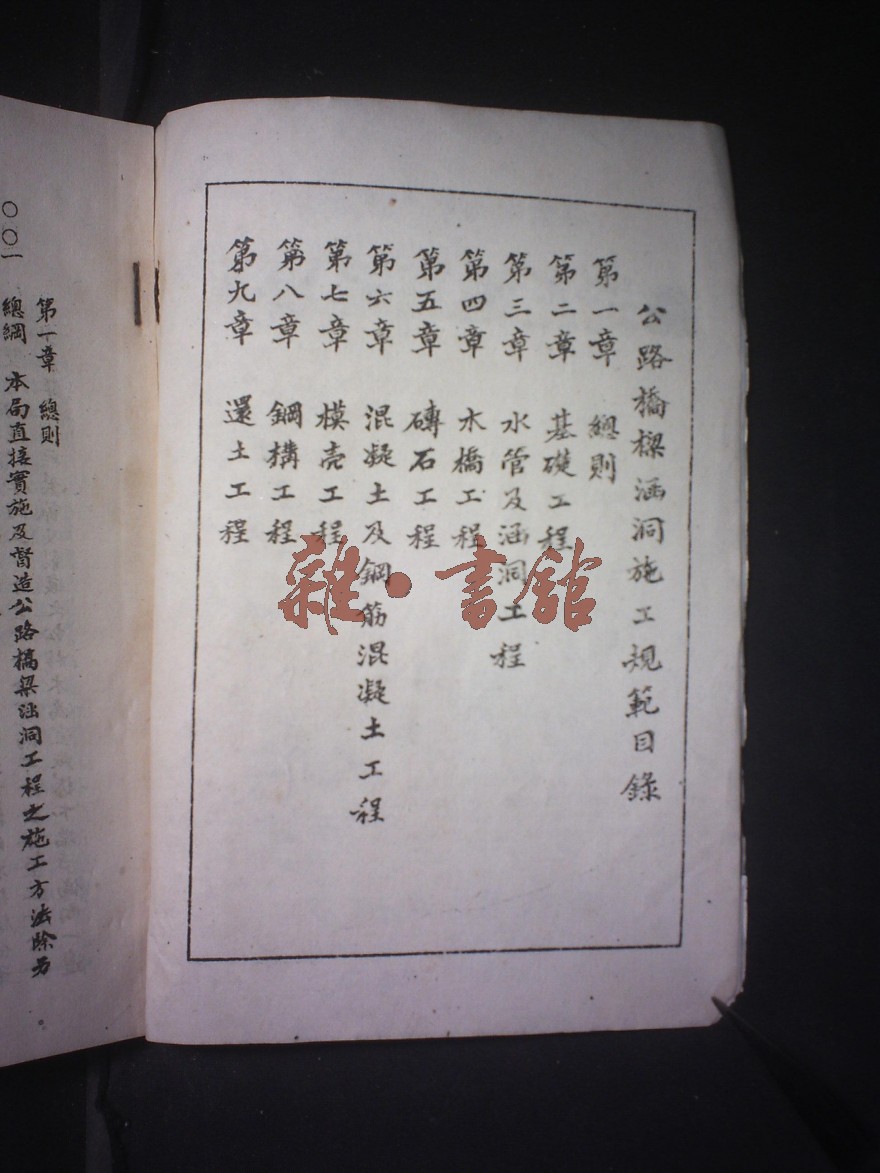 公路橋樑涵洞施工規範目錄
第一章 總則
第二章 基礎工程
第三章 水管及涵洞工程
第四章 木橋工程
第五章 磚石工程
第六章 混凝土及鋼筋混凝土工程
第七章 模壳工程
第八章 鋼構工程
第九章 還土工程
雜·書館
第一章 總則
〇〇一 總綱 本局直接實施及督造公路橋梁涵洞工程之施工方法除另